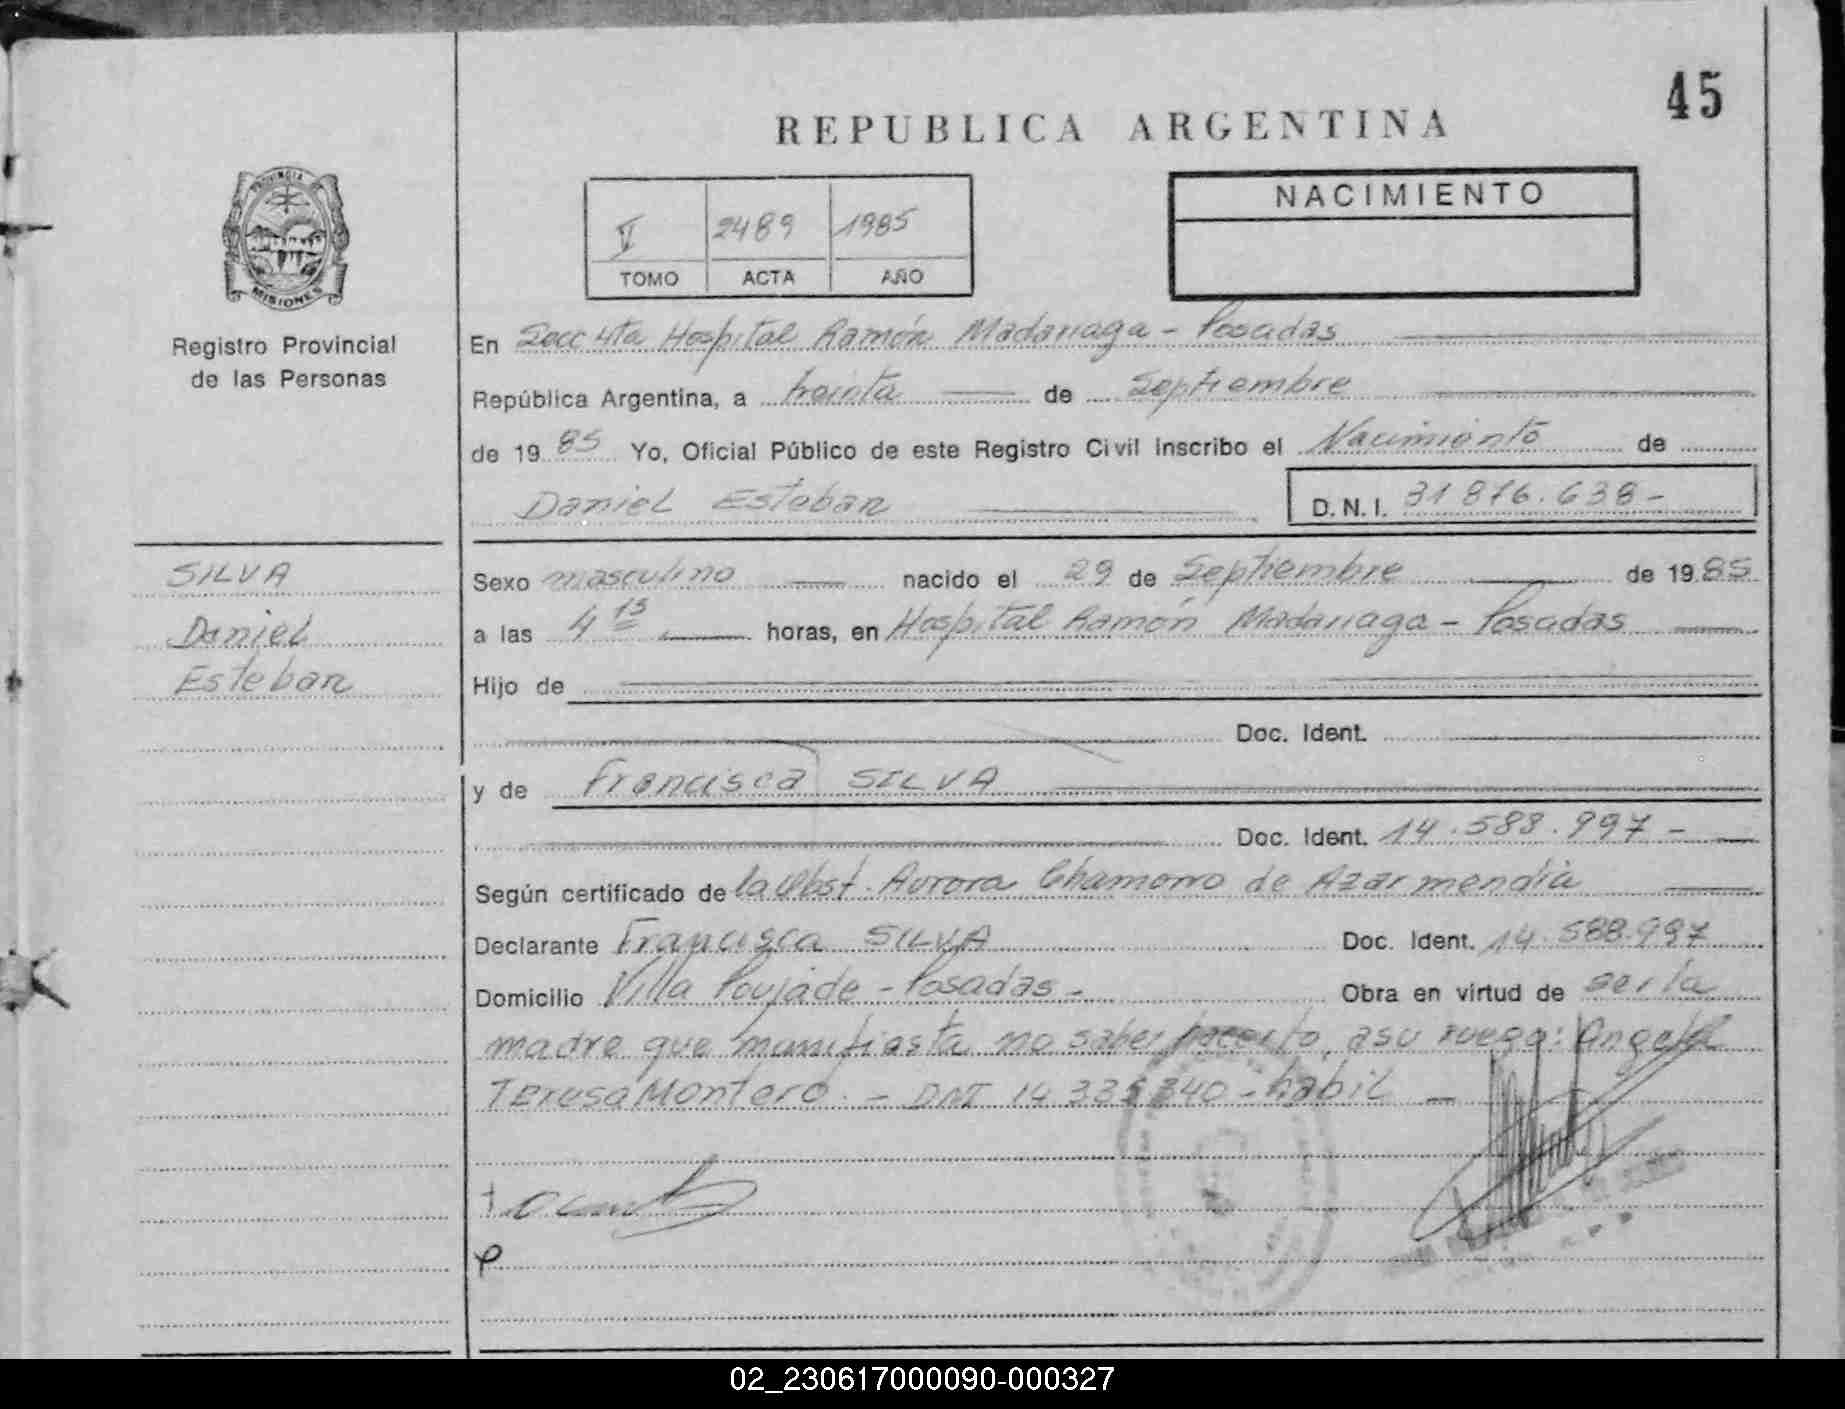 45
REPUBLICA ARGENTINA
PROVINCIA DE
MISIONES
Registro Provincial
de las Personas
NACIMIENTO
2489 1985
TOMO ACTA AÑO
En Secc 4ta Hospital Ramón Madariaga - Posadas
República Argentina, a treinta de Septiembre
de 1985 Yo, Oficial Público de este Registro Civil inscribo el Nacimiento de
Daniel Esteban D.N.I. 31 876.638-
SILVA
Daniel
Esteban
Sexo masculino nacido el 29 de Septiembre de 1985
a las 4 15 horas, en Hospital Ramón Madariaga - Posadas
Hijo de
Doc. Ident.
y de Francisca SILVA
Doc. Ident. 14.588.997-
Según certificado de la Obst. Aurora Chamorro de Azarmendia
Declarante Francisca SILVA Doc. Ident. 14.588.997
Domicilio Villa Poujade - Posadas - Obra en virtud de ser la
madre que manifiesta no saber hacerlo, a su ruego:
Teresa Montero. - DNI 14 335 340 - habil -
02_230617000090-000327